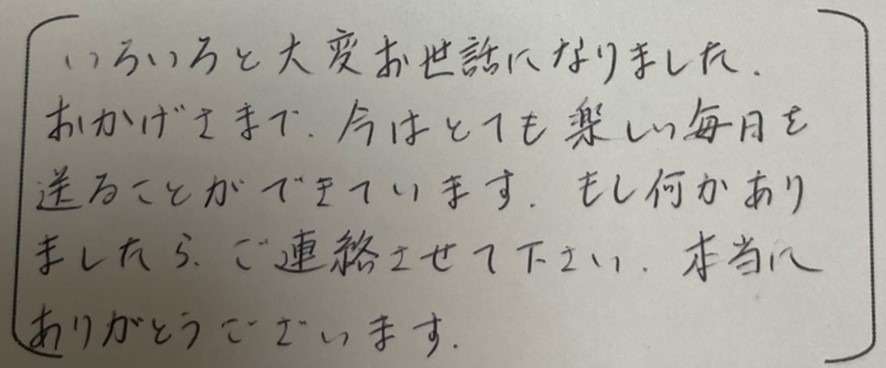 いろいろと大変お世話になりました.
おかげさまで、今はとても楽しい毎日を
送ることができています. もし何かあり
ましたら、ご連絡させて下さい. 本当に
ありがとうございます.